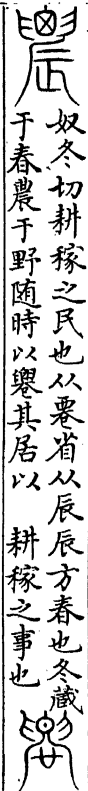 農
奴冬切耕稼之民也从䙴省从辰辰方春也冬藏
于春農于野随時以䙴其居以　耕稼之事也